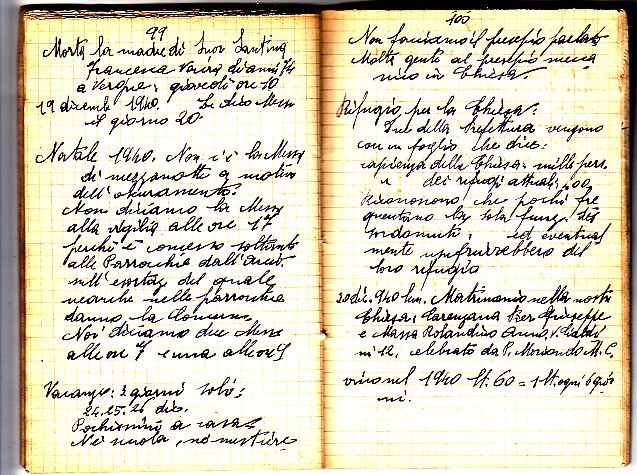 99
Morta la madre di Suor Santina
Francesca di anni 74
a Vergne: giovedì ore 10
19 dicembre 1940. Le dico Messe
il giorno 20
Natale 1940. Non c'è la Messa
di mezzanotte a motivo
dell'oscuramento.
Non diciamo la Messa
alla vigilia alle ore 17
perchè è concesso soltanto
alle Parrocchie dall'Arciv.
nell' del quale
neanche nelle parrocchie
danno la Comunione
Noi diciamo due Messe
alle ore 7 e una alle ore 9
Vacanze: 3 giorni soli:
24.25.26 dic.
Pochissimi a casa.
Nè scuola, nè mestiere
100
Non facciamo il presepio parlato
Molta gente al presepio mecca
nico in Chiesa.
Rifugio per la Chiesa:
Due della Prefettura vengono
con un foglio che dice:
capienza della Chiesa: mille pers.
dei rifugi attuali: 400
Riconoscono che pochi fre
quentano la sola funz. dei
sordomuti: ed eventual
mente usufruirebbero del
loro rifugio
Matrimonio nella nostra
Chiesa: Giuseppe
e Massa Anna, V.
ni 12. celebrato da P. M. C.
vino nel 1940 lt. 60 = 1 lt. ogni 6 gior
ni.